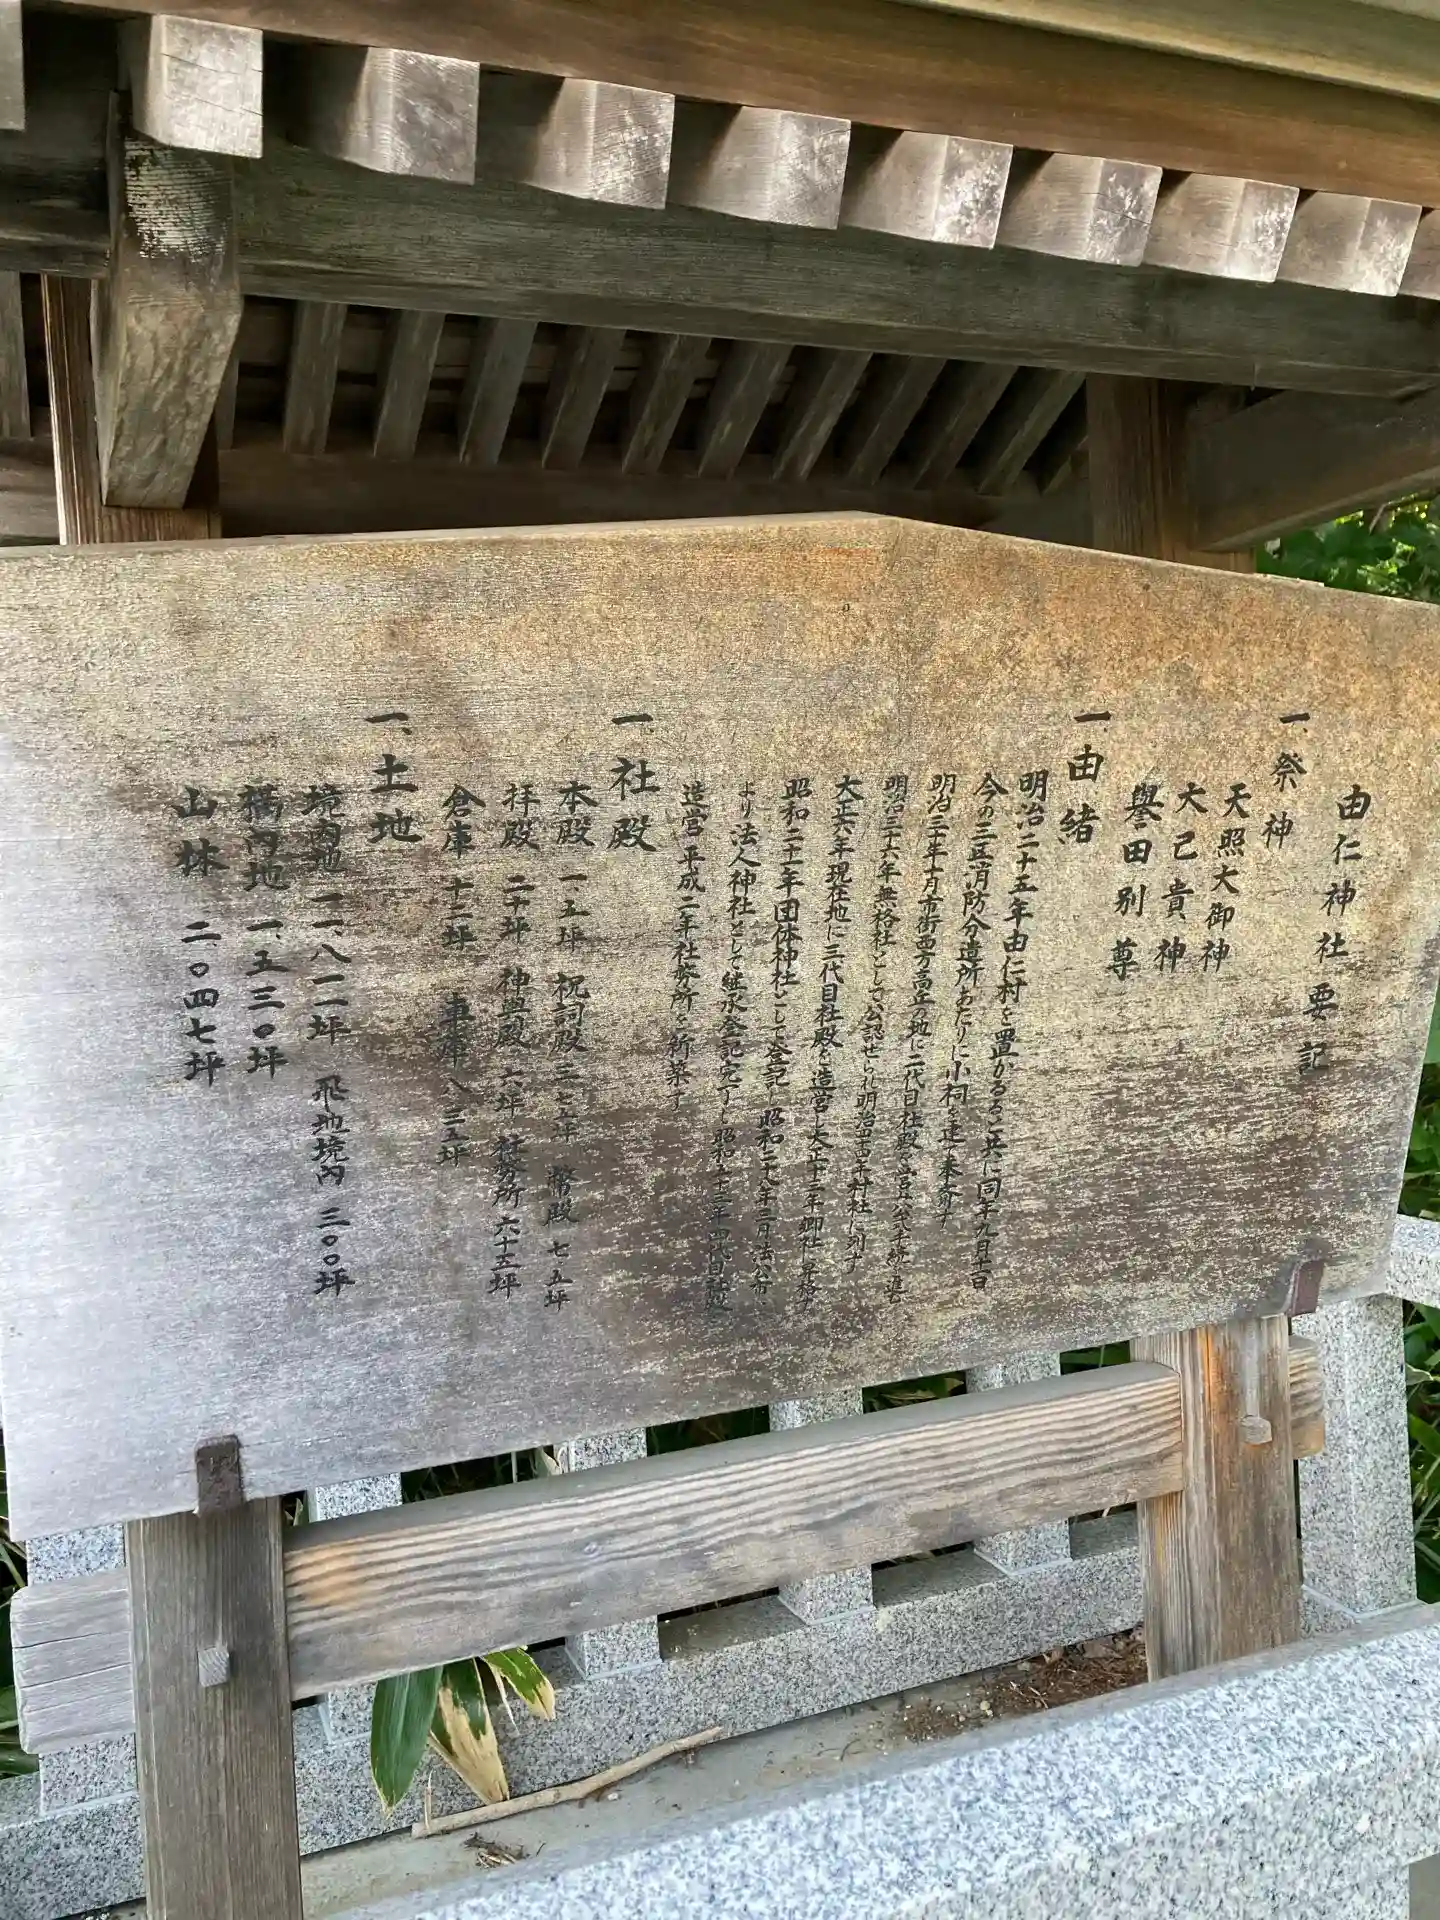 由仁神社要記
一、祭神
天照大御神
大己貴神
譽田別尊
一、由緒
明治二十五年由仁村を置かるると共に同年九月十一日
今の三区消防分遣所あたりに小祠を建て奉斎す
明治三十年十月市街西方高丘の地に二代目社殿を造営公式手続を進め
明治三十六年無格社として公認せられ明治四十四年村社に列す
大正六年現在地に三代目社殿を造営し大正十三年郷社に昇格す
昭和二十一年団体神社として登記し昭和二十九年三月法公布
より法人神社として継承登記完了し昭和五十三年四代目社殿
造営平成二年社務所を新築す
一、社殿
本殿 一、五坪 祝詞殿 三、七五坪 幣殿 七、五坪
拝殿 二十坪 神輿殿 六坪 社務所 六十五坪
倉庫 十二坪 車庫 八、二五坪
一、土地
境内地 一一、八一一坪 飛地境内 三〇〇坪
構内地 一、五三〇坪
山林 二、〇四七坪